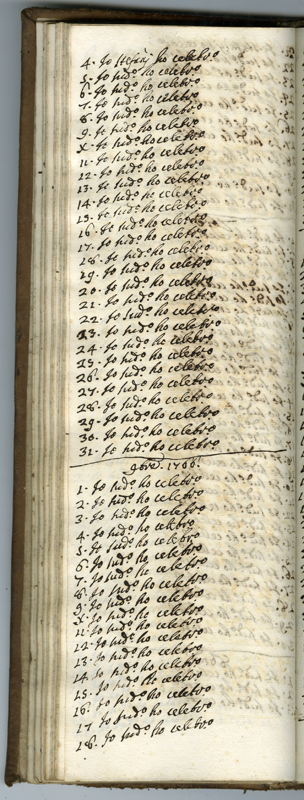 4. Io Stefanj ho celebro
5. Io sud.o ho celebr.o
6. Io sud.o ho celebr.o
7. Io sud.o ho celebr.o
8. Io sud.o ho celebr.o
9. Io sud.o ho celebr.o
X. Io sud.o ho celebr.o
11. Io sud.o ho celebr.o
12. Io sud.o ho celebr.o
13. Io sud.o ho celebr.o
14. Io sud.o ho celebr.o
15. Io sud.o ho celebr.o
16. Io sud.o ho celebr.o
17. Io sud.o ho celebr.o
18. Io sud.o ho celebr.o
19. Io sud.o ho celebr.o
20. Io sud.o ho celebr.o
21. Io sud.o ho celebr.o
22. Io sud.o ho celebr.o
23. Io sud.o ho celebr.o
24. Io sud.o ho celebr.o
25. Io sud.o ho celebr.o
26. Io sud.o ho celebr.o
27. Io sud.o ho celebr.o
28. Io sud.o ho celebr.o
29. Io sud.o ho celebr.o
30. Io sud.o ho celebr.o
31. Io sud.o ho celebr.o
9bre 1766.
1. Io sud.o ho celebr.o
2. Io sud.o ho celebr.o
3. Io sud.o ho celebr.o
4. Io sud.o ho celebr.o
5. Io sud.o ho celebr.o
6. Io sud.o ho celebr.o
7. Io sud.o ho celebr.o
8. Io sud.o ho celebr.o
9. Io sud.o ho celebr.o
X. Io sud.o ho celebr.o
11. Io sud.o ho celebr.o
12. Io sud.o ho celebr.o
13. Io sud.o ho celebr.o
14. Io sud.o ho celebr.o
15. Io sud.o ho celebr.o
16. Io sud.o ho celebr.o
17. Io sud.o ho celebr.o
18. Io sud.o ho celebr.o